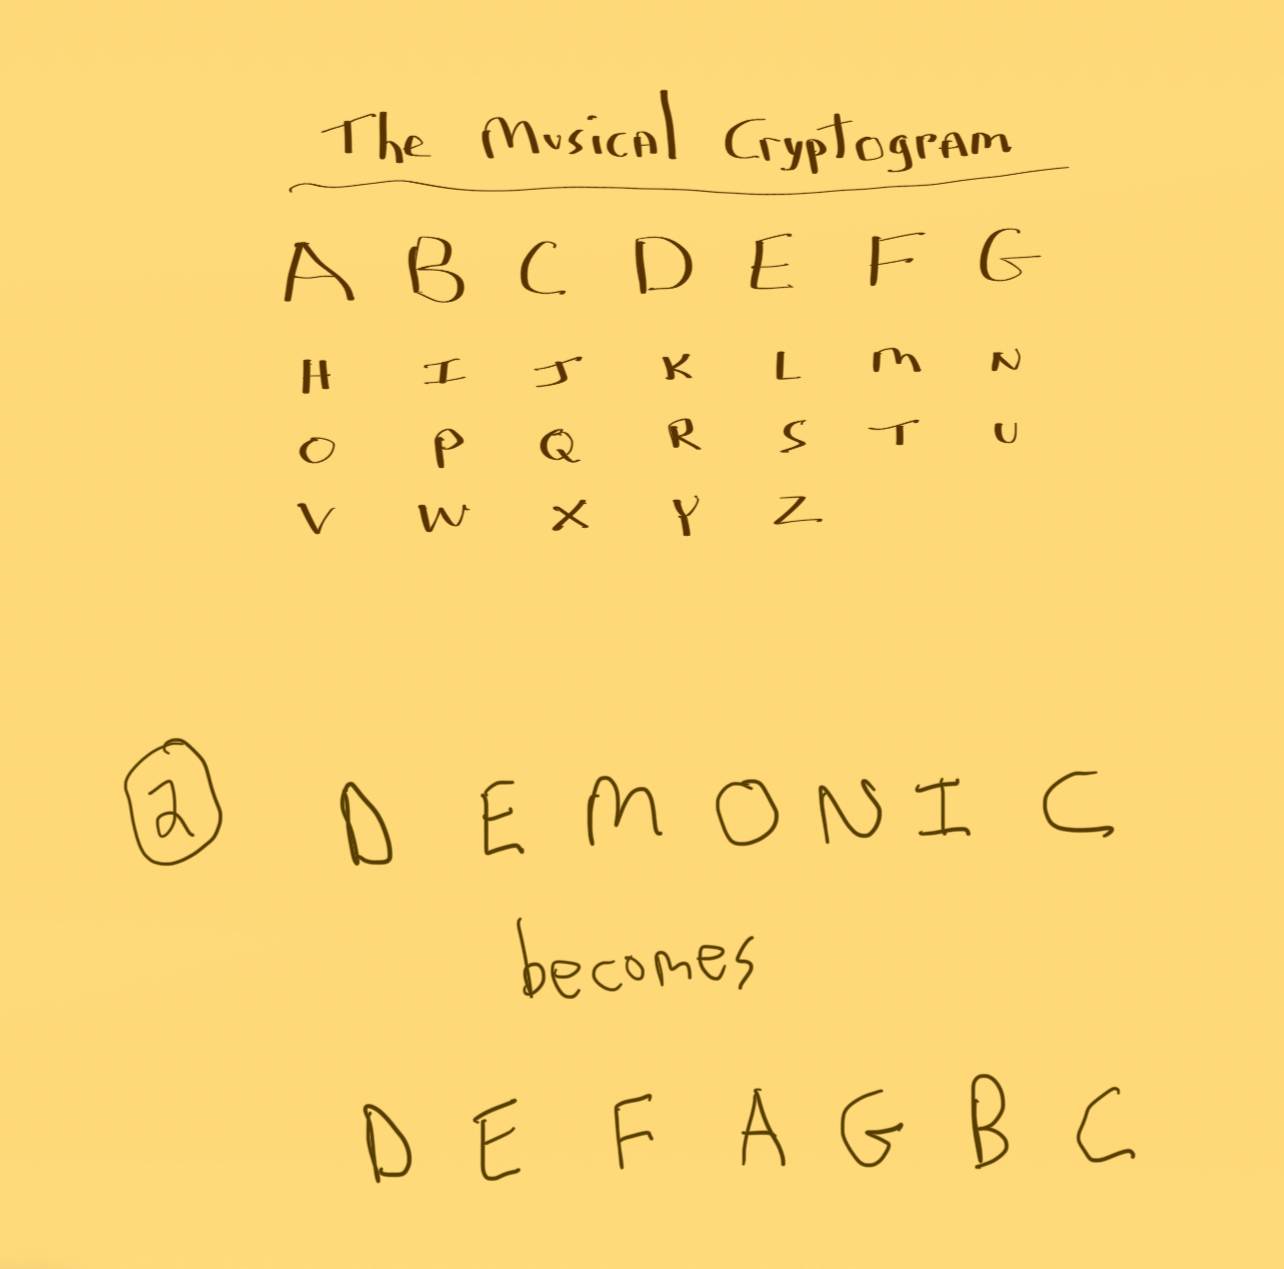 The Musical Cryptogram
A B C D E F G
H I J K L M N
O P Q R S T U
V W X Y Z
2 D E M O N I C
becomes
D E F A G B C